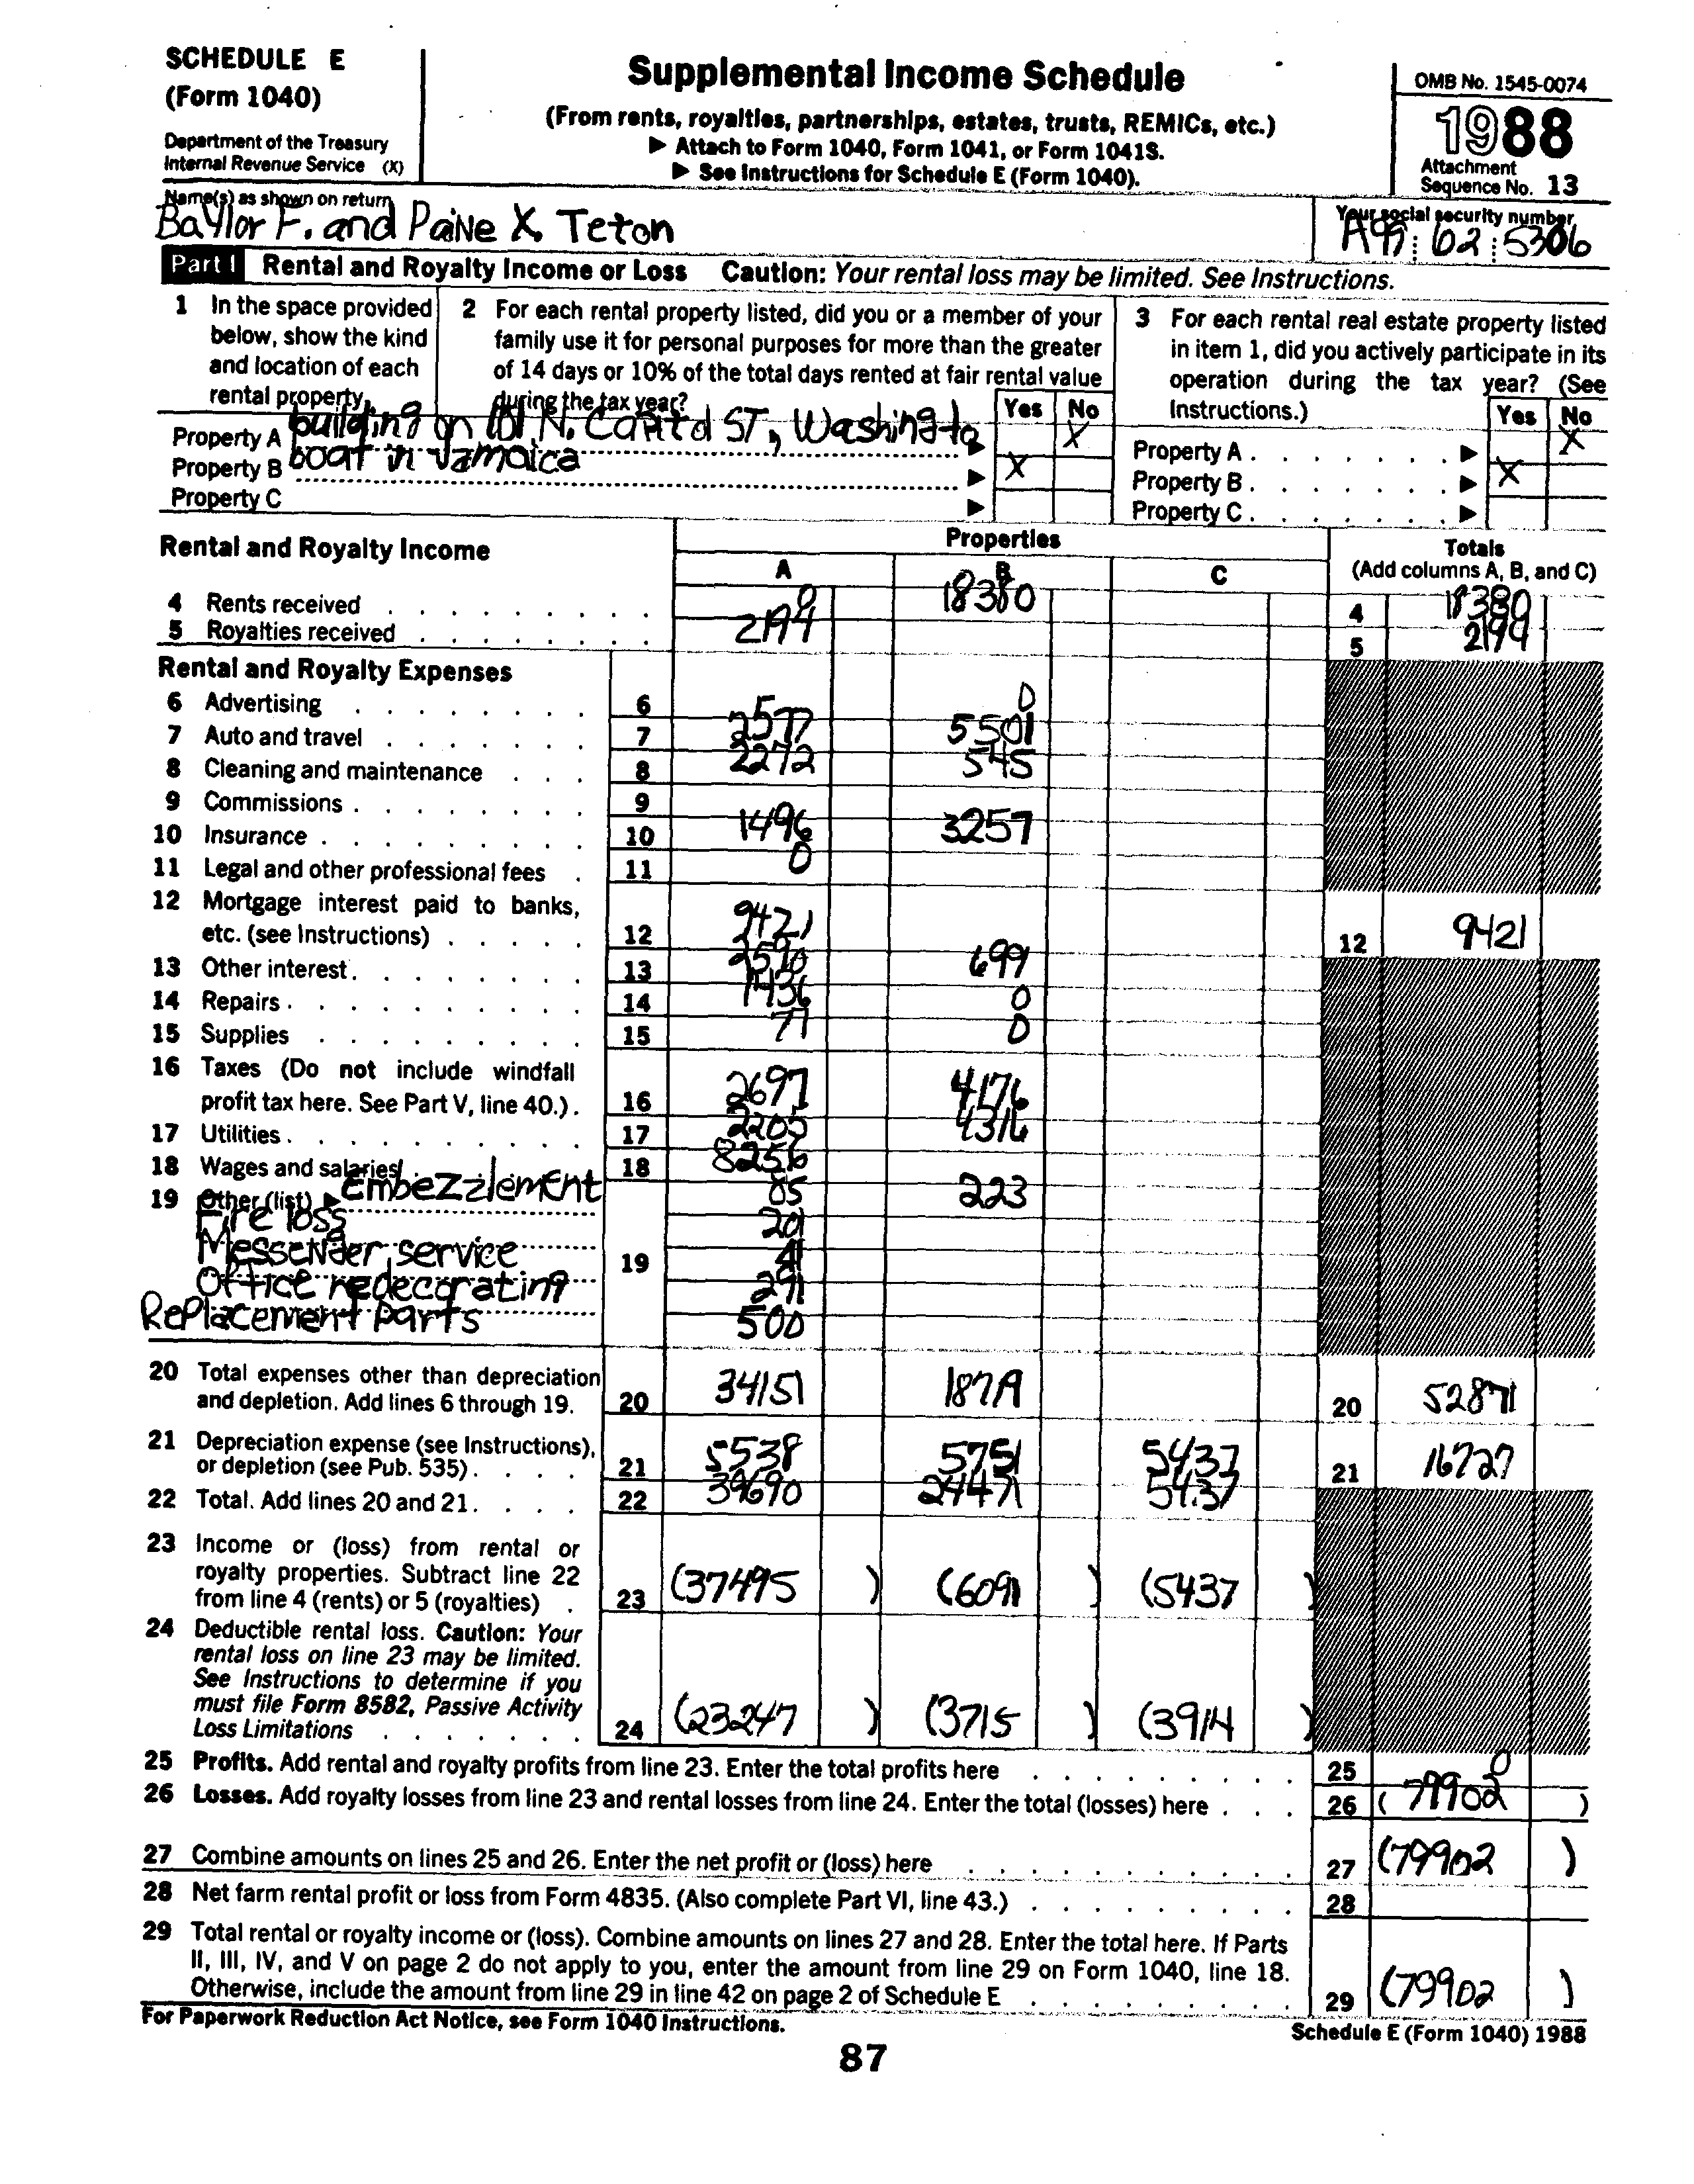 SCHEDULE E
(Form 1040)
Department of the Treasury
Internal Revenue Service (X)
Supplemental Income Schedule
(From rents, royalties, partnerships, estates, trusts, REMICs, etc.)
▶ Attach to Form 1040, Form 1041, or Form 1041S.
▶ See Instructions for Schedule E (Form 1040).
OMB No. 1545-0074
1988
Attachment
Sequence No. 13
Name(s) as shown on return
Baylor F. and Paine X. Teton
Your social security number
62 5306
Part I Rental and Royalty Income or Loss Caution: Your rental loss may be limited. See Instructions.
1 In the space provided
below, show the kind
and location of each
rental property.
2 For each rental property listed, did you or a member of your
family use it for personal purposes for more than the greater
of 14 days or 10% of the total days rented at fair rental value
during the tax year?
Yes No
3 For each rental real estate property listed
in item 1, did you actively participate in its
operation during the tax year? (See
Instructions.)
Yes No
Property A building on 101 N. Capitol ST, Washingto ▶ X
Property B boat in Jamaica ▶ X
Property C ▶
Property A . . . . . . . ▶ X
Property B . . . . . . . ▶ X
Property C . . . . . . . ▶
Rental and Royalty Income
Properties
A B C
Totals
(Add columns A, B, and C)
4 Rents received 0 18380 4 18380
5 Royalties received 5
Rental and Royalty Expenses
6 Advertising 6 0
7 Auto and travel 7 2577 5501
8 Cleaning and maintenance 8 2272 545
9 Commissions 9
10 Insurance 10 1496 3257
11 Legal and other professional fees 11 0
12 Mortgage interest paid to banks,
etc. (see Instructions) 12 9421 12 9421
13 Other interest 13 2590 699
14 Repairs 14 1436 0
15 Supplies 15 0
16 Taxes (Do not include windfall
profit tax here. See Part V, line 40.) 16 2697 4176
17 Utilities 17 2205 4316
18 Wages and salaries 18 8256
19 Other (list) ▶ Embezzlement 85 223
Fire loss 201
Messenger service 19 41
Office redecorating
Replacement parts 500
20 Total expenses other than depreciation
and depletion. Add lines 6 through 19. 20 34151 20 52871
21 Depreciation expense (see Instructions),
or depletion (see Pub. 535) 21 5538 5751 5437 21 16727
22 Total. Add lines 20 and 21 22 39690 24471 5437
23 Income or (loss) from rental or
royalty properties. Subtract line 22
from line 4 (rents) or 5 (royalties) 23 (37495 ) (6091 ) (5437 )
24 Deductible rental loss. Caution: Your
rental loss on line 23 may be limited.
See Instructions to determine if you
must file Form 8582, Passive Activity
Loss Limitations 24 (23247 ) (3715 ) (3914 )
25 Profits. Add rental and royalty profits from line 23. Enter the total profits here 25 0
26 Losses. Add royalty losses from line 23 and rental losses from line 24. Enter the total (losses) here 26 ( 79902 )
27 Combine amounts on lines 25 and 26. Enter the net profit or (loss) here 27 (79902 )
28 Net farm rental profit or loss from Form 4835. (Also complete Part VI, line 43.) 28
29 Total rental or royalty income or (loss). Combine amounts on lines 27 and 28. Enter the total here. If Parts
II, III, IV, and V on page 2 do not apply to you, enter the amount from line 29 on Form 1040, line 18.
Otherwise, include the amount from line 29 in line 42 on page 2 of Schedule E 29 (79902 )
For Paperwork Reduction Act Notice, see Form 1040 Instructions.
Schedule E (Form 1040) 1988
87